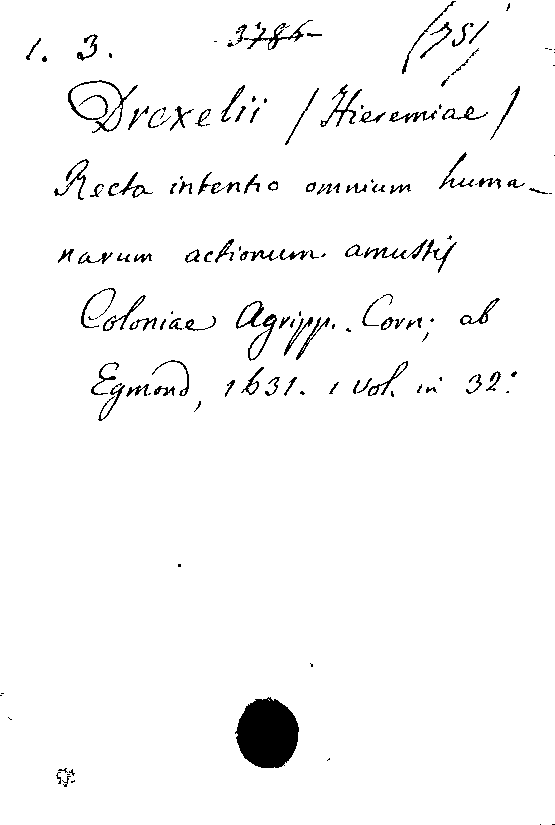 1. 3. 3786 (751)
Drexelii (Hieremiae)
Recta intentio omnium huma-
narum actionum amussis
Coloniae Agripp. Corn; ab
Egmond, 1631. 1 vol. in 32: